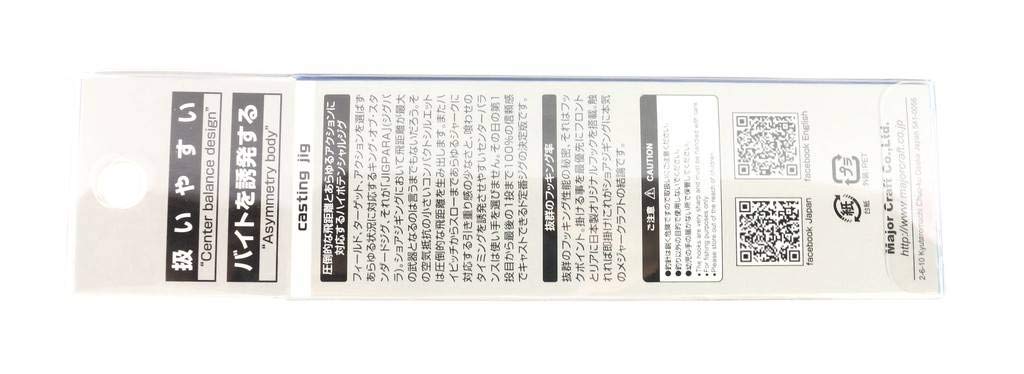 扱いやすい
"Center balance design"
バイトを誘発する
"Asymmetry body"
casting jig
圧倒的な飛距離とあらゆるアクションに
対応するハイポテンシャルジグ
フィールド、ターゲット、アクションを選ばず
あらゆる状況に対応するキング・オブ・スタ
ンダードジグ、それが「JIGPARA」(ジグパ
ラ)。ショアジギングにおいて飛距離が最大
の武器となるのは言うまでもないだろう。そ
の空気抵抗の小さいコンパクトシルエット
は圧倒的な飛距離を生み出します。またハ
イピッチからスローまであらゆるジャークに
対応する引き重り感の少なさと、喰わせの
タイミングを誘発させやすいセンターバラ
ンスは使い手を選びません。その日の第1
投目から最後の1投まで100%の信頼感
でキャストできるド定番ジグの決定版です。
抜群のフッキング率
抜群のフッキング性能の秘密、それはフッ
クポイント、掛ける事を最優先にフロント
とリアに日本製オリジナルフックを搭載。触
れれば即掛け!これがショアジギングに本気
のメジャークラフトの結論です。
ご注意 CAUTION
●釣針は鋭く危険ですので取扱いにご注意ください。
●釣り以外の目的で使用しないでください。
●幼児の手の届かない所で保管してください。
●The hooks are very sharp and must be handled with care.
●For fishing purposes only.
●Please store out of the reach of children.
facebook Japan
facebook English
紙
台紙
プラ
外袋:PET
Major Craft Co.,Ltd.
http://www.majorcraft.co.jp